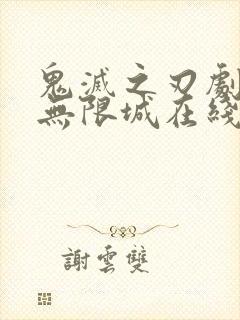 鬼滅之刃劇
無限城在綫
謝雲雙